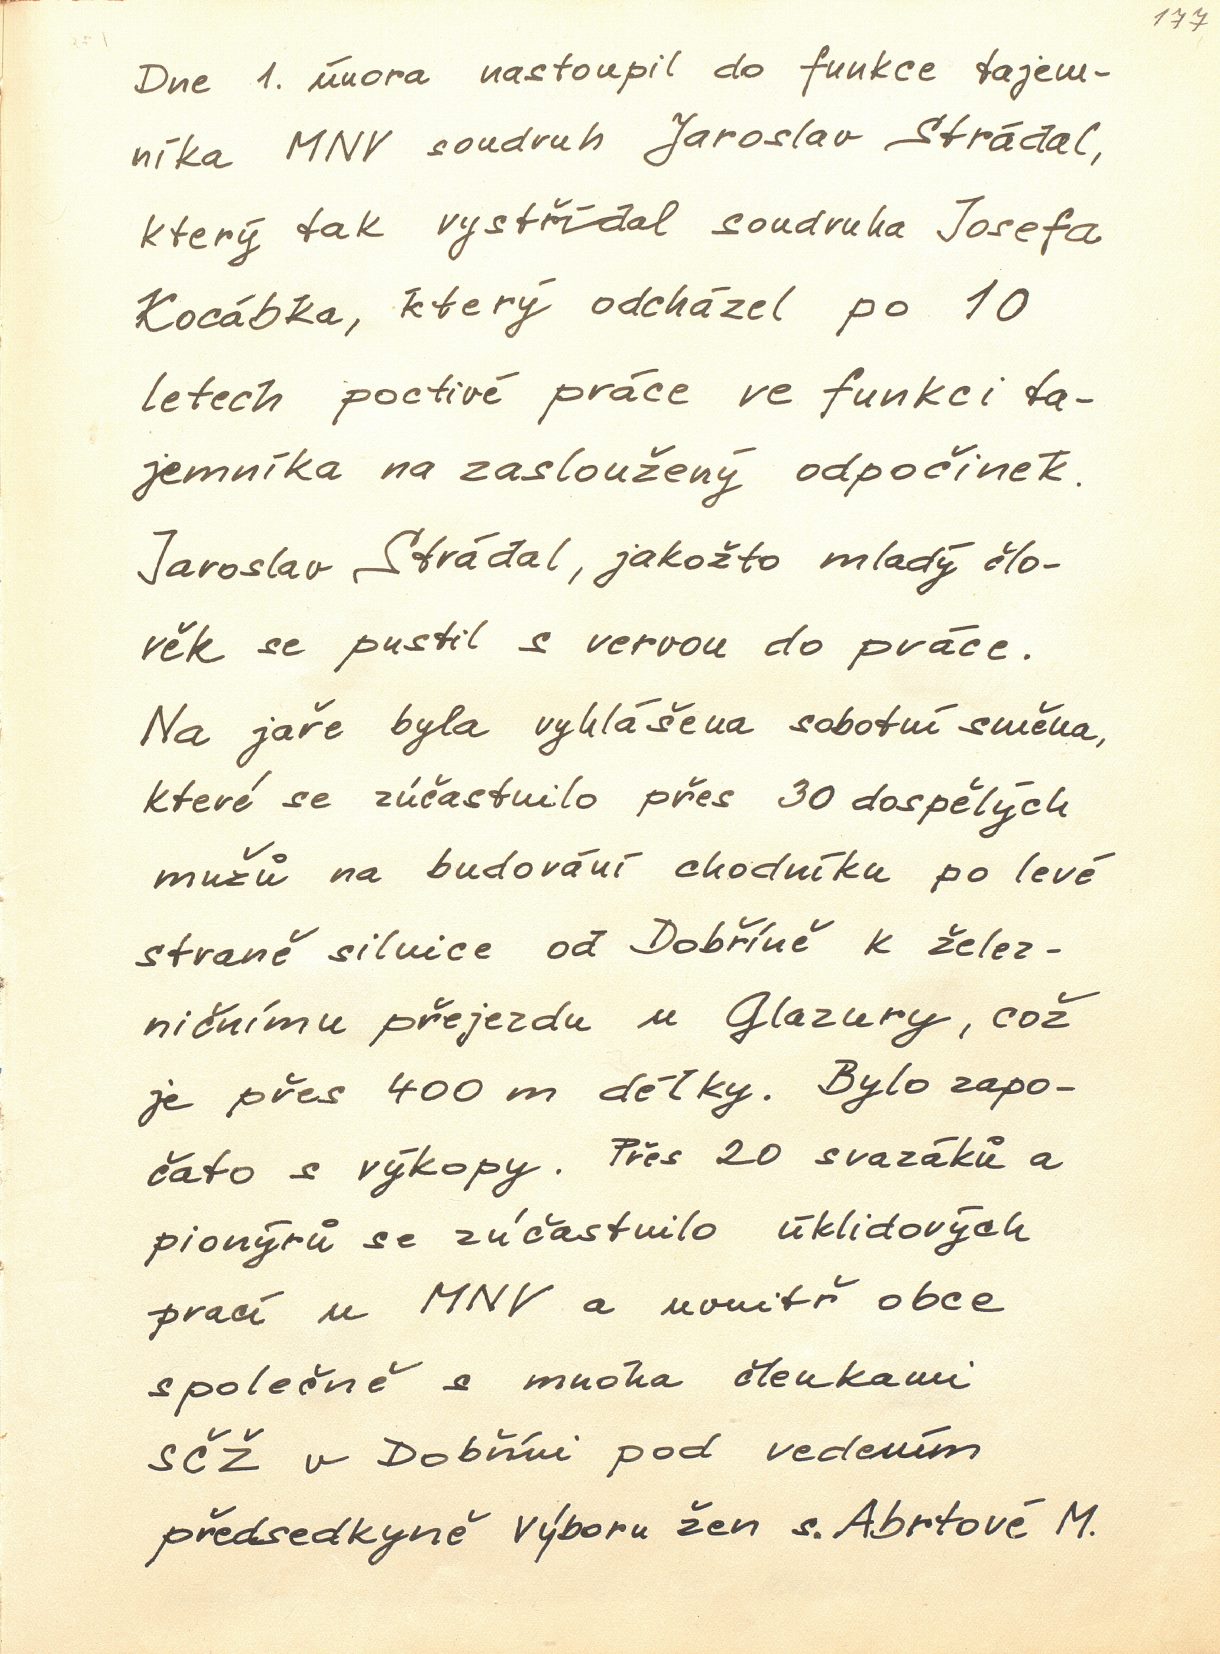 177
Dne 1. února nastoupil do funkce tajem-
níka MNV soudruh Jaroslav Strádal,
který tak vystřídal soudruha Josefa
Kocábka, který odcházel po 10
letech poctivé práce ve funkci ta-
jemníka na zasloužený odpočinek.
Jaroslav Strádal, jakožto mladý člo-
věk se pustil s vervou do práce.
Na jaře byla vyhlášena sobotní směna,
které se zúčastnilo přes 30 dospělých
mužů na budování chodníku po levé
straně silnice od Dobříně k želez-
ničnímu přejezdu u Glazury, což
je přes 400 m délky. Bylo zapo-
čato s výkopy. Přes 20 svazáků a
pionýrů se zúčastnilo úklidových
prací u MNV a uvnitř obce
společně s mnoha členkami
SČŽ v Dobříni pod vedením
předsedkyně Výboru žen s. Abrtové M.